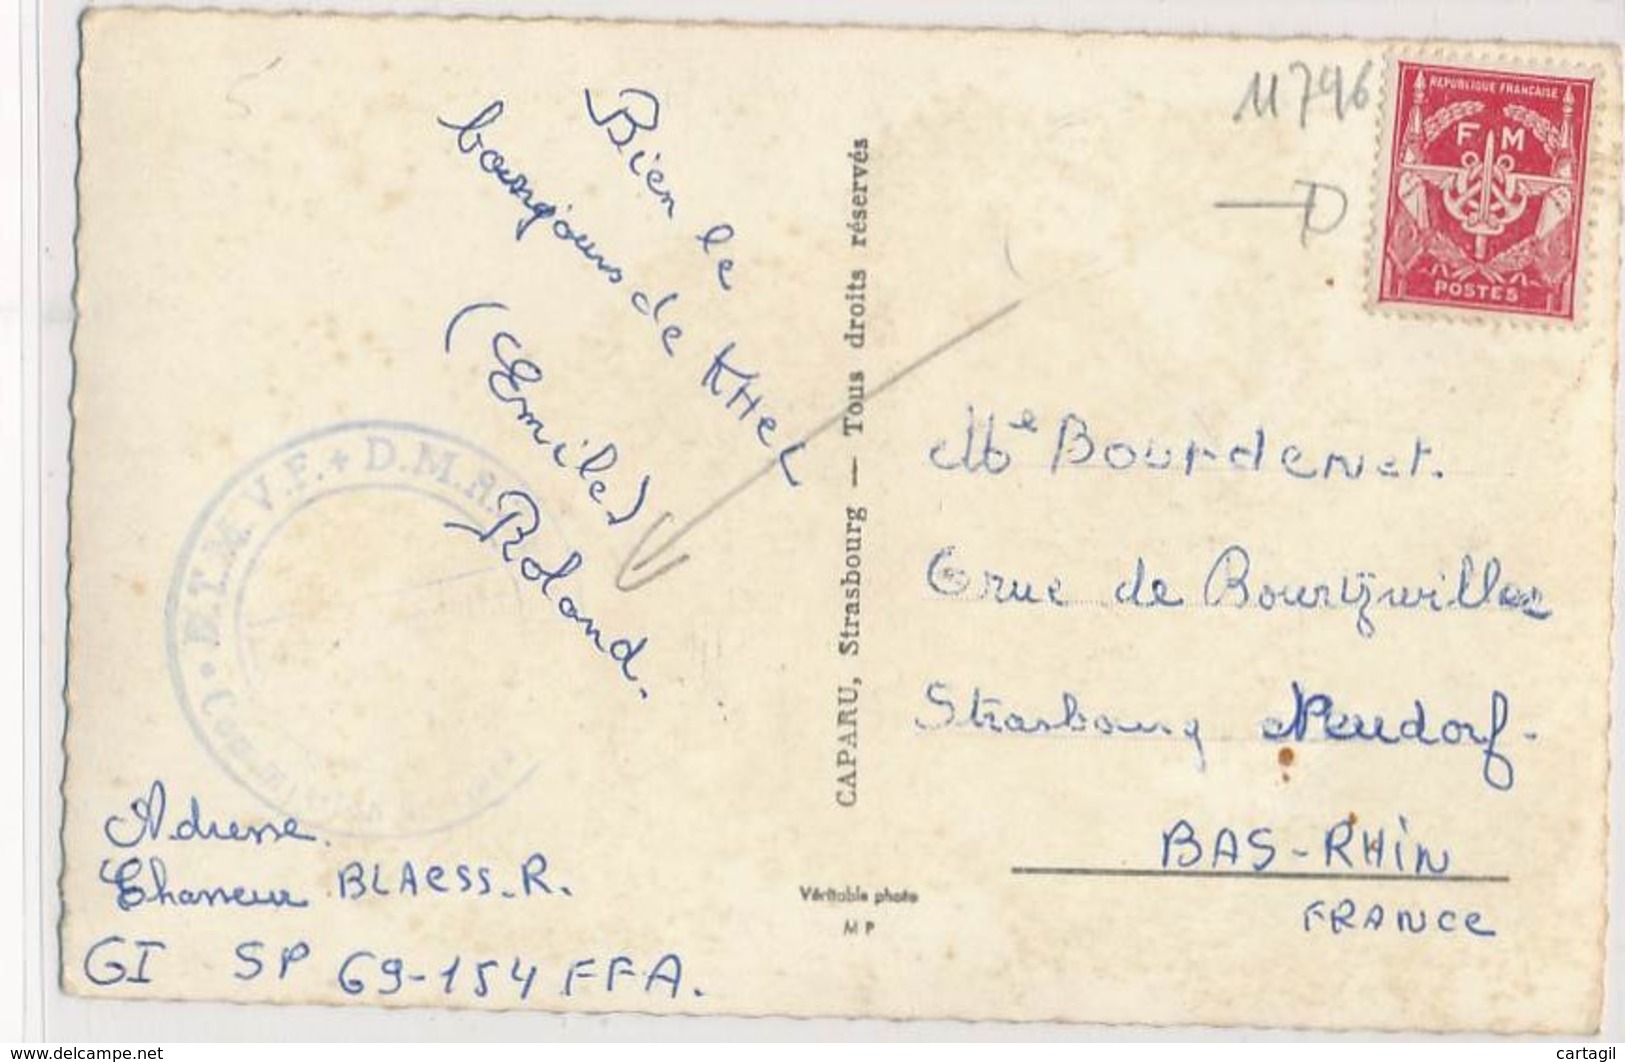 11796
D
REPUBLIQUE FRANCAISE
F M
POSTES
Bien le
bongjours de KHeL
(Emile)
Roland.
D.T.M.V.F. + D.M.A.
Adresse.
Chasseur BLAESS-R.
GI SP 69-154 FFA.
CAPARU, Strasbourg — Tous droits réservés
Véritable photo
M P
Me Bourdenet.
6 rue de Bourtzwiller
Strasbourg Neudorf-
BAS-RHIN
FRANCE
www.delcampe.net
cartagil